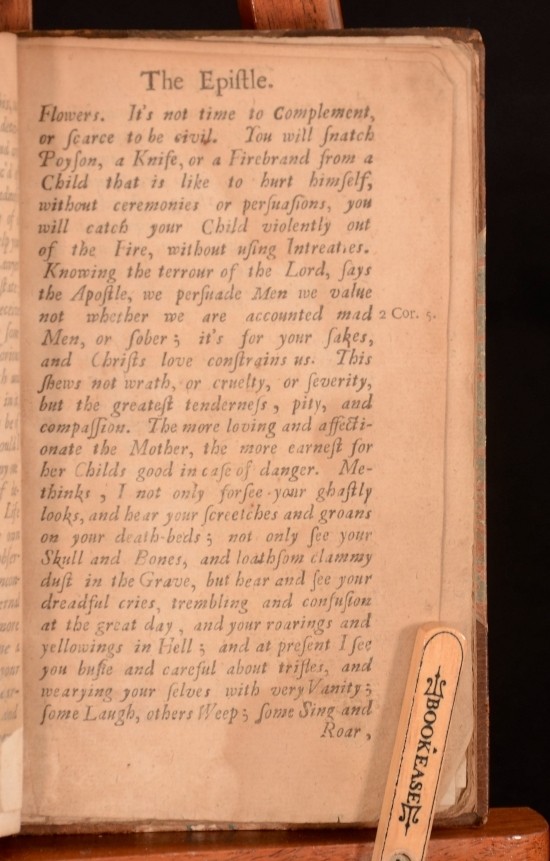 The Epiſtle.
Flowers. It's not time to Complement,
or ſcarce to be civil. You will ſnatch
Poyſon, a Knife, or a Firebrand from a
Child that is like to hurt himſelf,
without ceremonies or perſuaſions, you
will catch your Child violently out
of the Fire, without uſing Intreaties.
Knowing the terrour of the Lord, ſays
the Apoſtle, we perſuade Men we value
not whether we are accounted mad 2 Cor. 5.
Men, or ſober; it's for your ſakes,
and Chriſts love conſtrains us. This
ſhews not wrath, or cruelty, or ſeverity,
but the greateſt tenderneſs, pity, and
compaſſion. The more loving and affecti-
onate the Mother, the more earneſt for
her Childs good in caſe of danger. Me-
thinks, I not only forſee your ghaſtly
looks, and hear your ſcreetches and groans
on your death-beds; not only ſee your
Skull and Bones, and loathſom clammy
duſt in the Grave, but hear and ſee your
dreadful cries, trembling and confuſion
at the great day, and your roarings and
yellowings in Hell; and at preſent I ſee
you buſie and careful about trifles, and
wearying your ſelves with very Vanity;
ſome Laugh, others Weep; ſome Sing and
Roar,
BOOK EASE